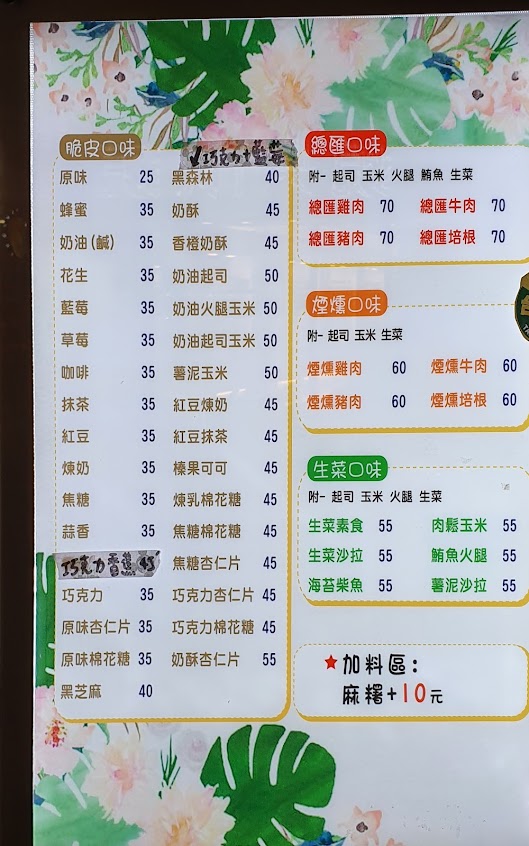 脆皮口味
✓巧克力+藍莓
原味 25
黑森林 40
蜂蜜 35
奶酥 45
奶油(鹹) 35
香橙奶酥 45
花生 35
奶油起司 50
藍莓 35
奶油火腿玉米 50
草莓 35
奶油起司玉米 50
咖啡 35
薯泥玉米 50
抹茶 35
紅豆煉奶 45
紅豆 35
紅豆抹茶 45
煉奶 35
榛果可可 45
焦糖 35
煉乳棉花糖 45
蒜香 35
焦糖棉花糖 45
巧克力香蕉 45
焦糖杏仁片 45
巧克力 35
巧克力杏仁片 45
原味杏仁片 35
巧克力棉花糖 45
原味棉花糖 35
奶酥杏仁片 55
黑芝麻 40
總匯口味
附- 起司 玉米 火腿 鮪魚 生菜
總匯雞肉 70 總匯牛肉 70
總匯豬肉 70 總匯培根 70
煙燻口味
附- 起司 玉米 生菜
煙燻雞肉 60 煙燻牛肉 60
煙燻豬肉 60 煙燻培根 60
生菜口味
附- 起司 玉米 火腿 生菜
生菜素食 55 肉鬆玉米 55
生菜沙拉 55 鮪魚火腿 55
海苔柴魚 55 薯泥沙拉 55
★加料區:
麻糬+10元